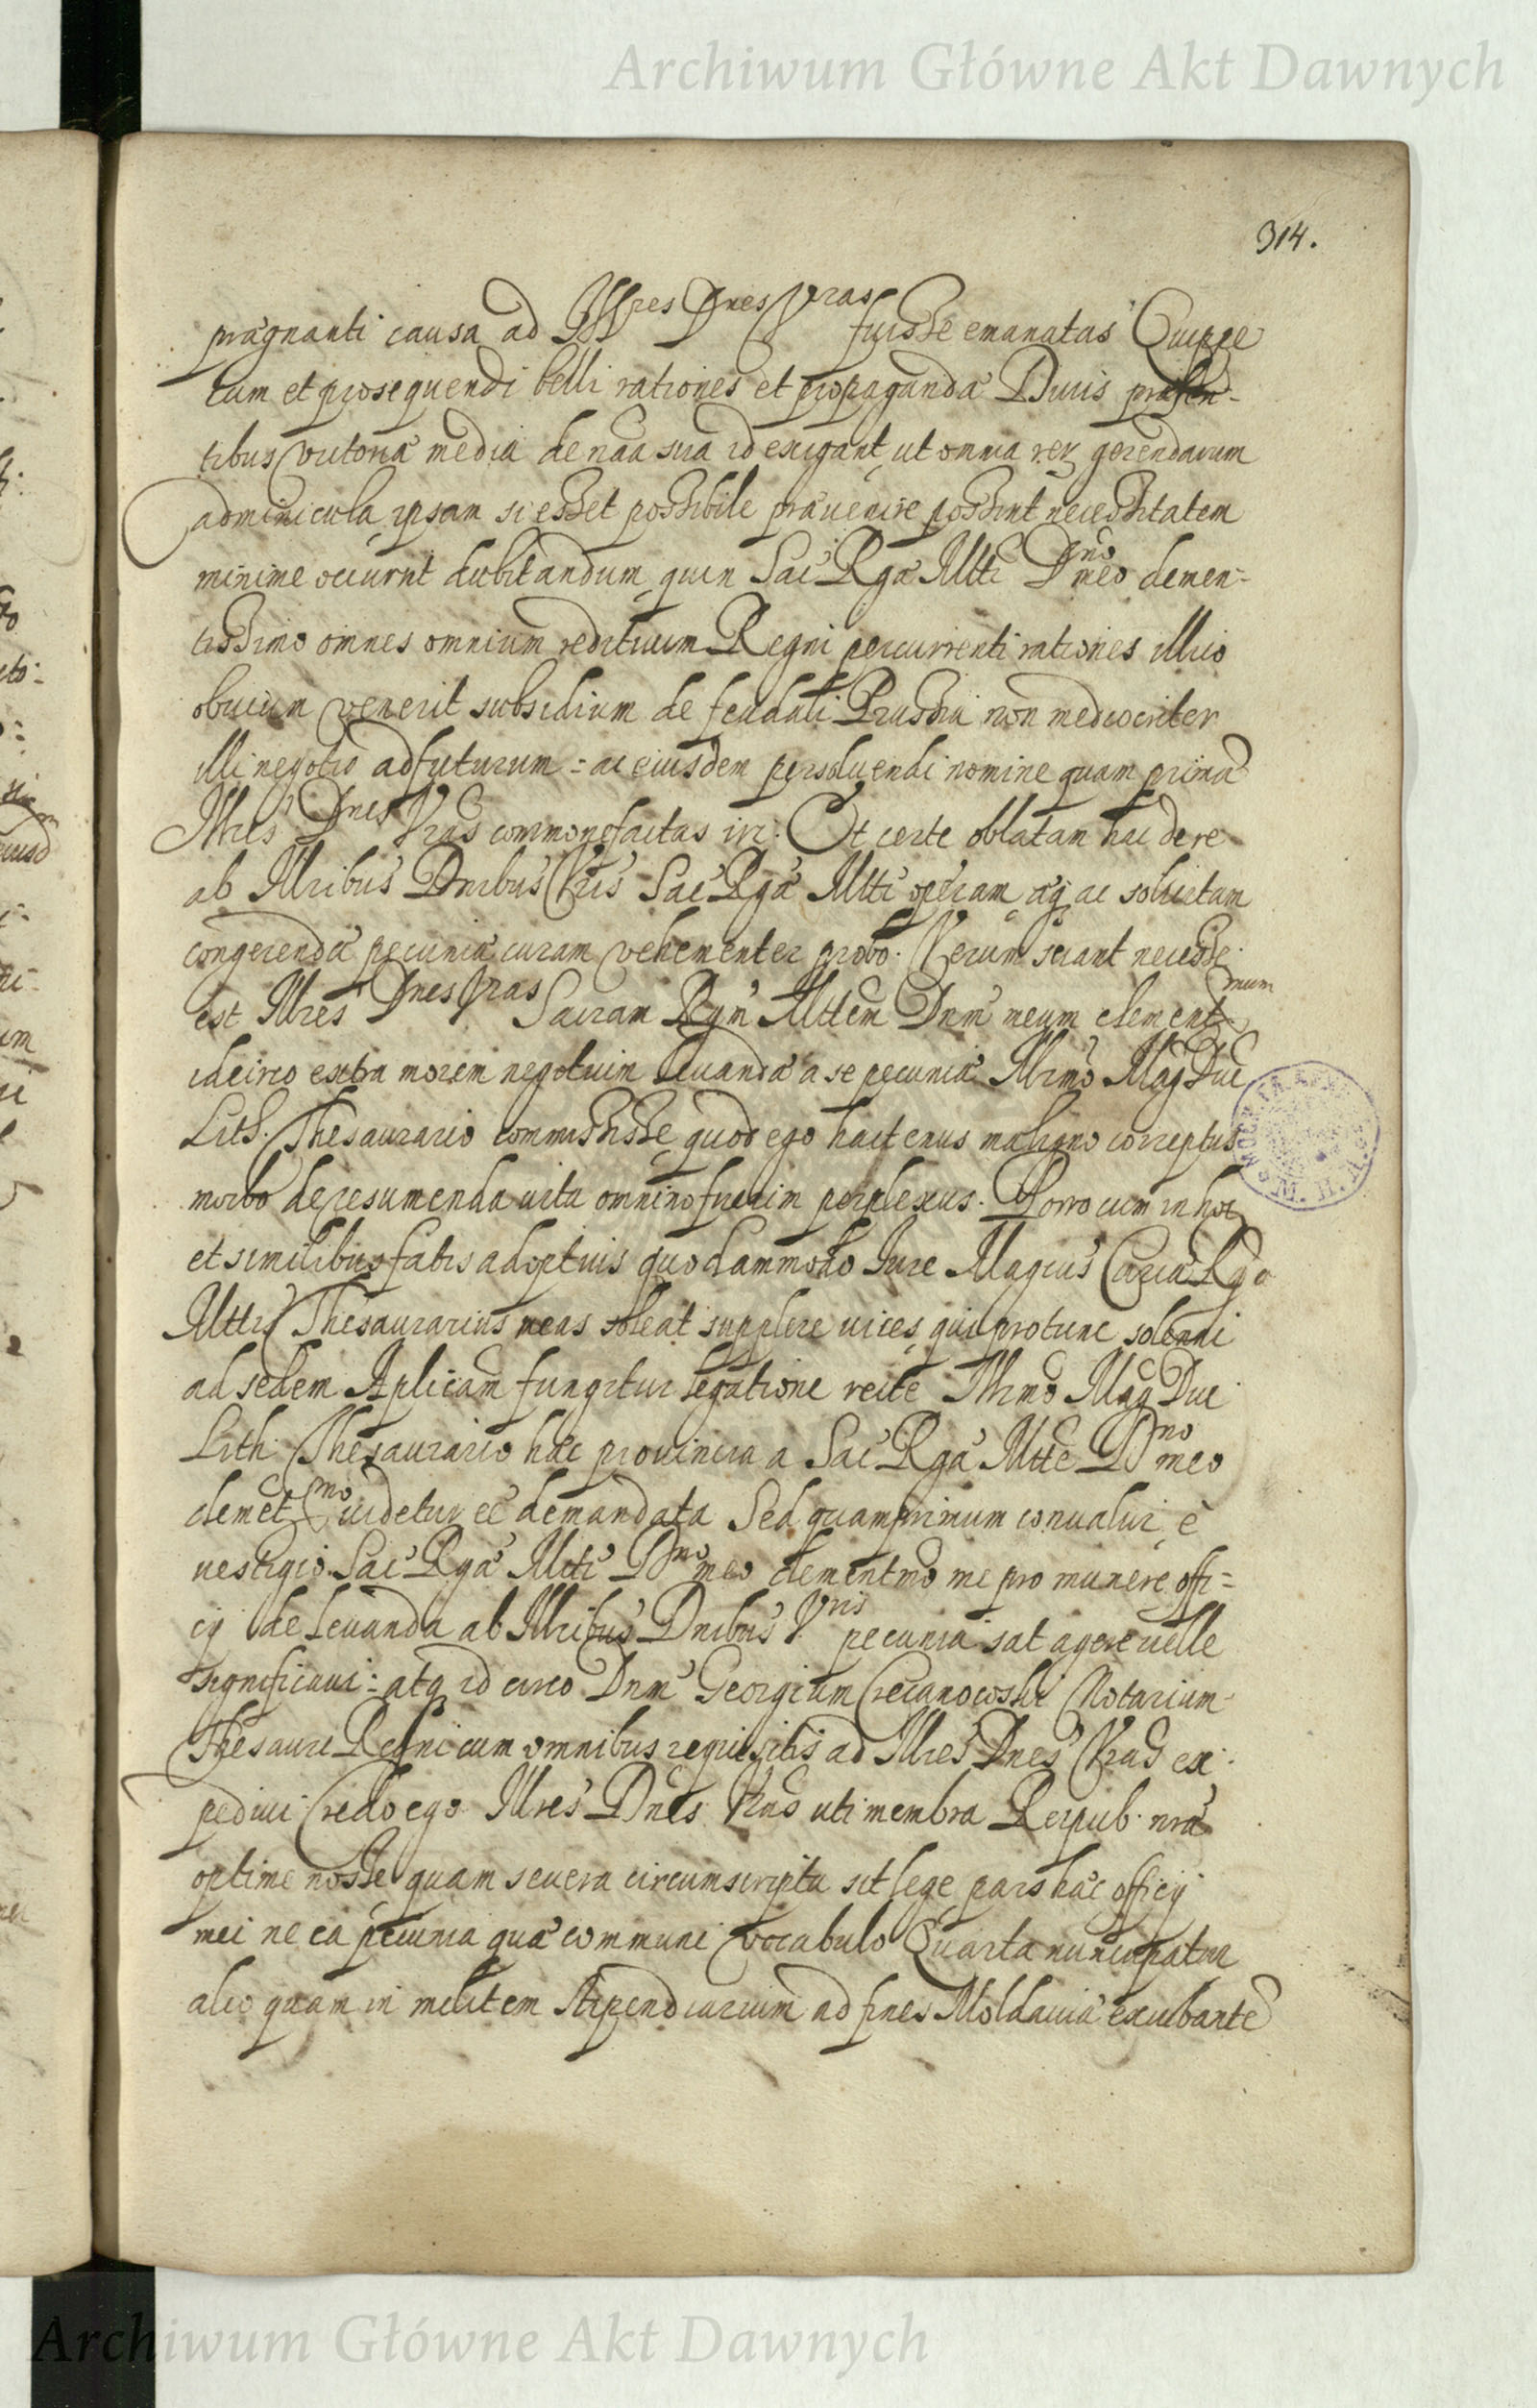 Archiwum Główne Akt Dawnych
314.
prægnanti causa ad Illres Dnes Vras fuisse emanatas Quippe
cum et prosequendi belli rationes et propaganda Diuis præsen-
tibus victoriæ media de nãa sua id exigant, ut omnia rerꝝ gerendarum
adminicula, ipsam si esset possibile præuenire possint necessitatem
minime occurrit dubitandum, quin Sac Rgæ Mtti Dno meo clemen-
tissimo omnes omnium redituum Regni percurrenti rationes illico
obuium venerit subsidium de feudali Prussia non mediocriter
illi negotio adfuturum: ac eiusdem persoluendi nomine quam primũ
Illres Dnes Vras commonefactas iri. Et certe oblatam hac de re
ab Illribus Dnibus Vris Sac Rgæ Mtti operam æq ac solicitam
congerendæ pecuniæ curam vehementer probo. Verum sciant necesse
est Illres Dnes Vras Sacram Rgm Mttem Dnm meum clementmum
idcirco extra morem negotium leuandæ a se pecuniæ Illrmo Mag Duc
Lith. Thesaurario commisisse, quod ego hactenus maligno correptus
morbo de resumenda vita omnino fuerim perplexus. Porro cum in hoc
et similibus fatis adoptiuis quodammodo Iure Magius Curiæ Rgæ
Mttis Thesaurarius meas soleat supplere vices, qui protunc solenni
ad sedem Aplicam fungitur legatione recte Illrmo Mag Duc
Lith. Thesaurario hæc prouincia a Sac Rga Mtte Dno meo
clemet mo videtur eē demandata Sed quamprimum conualui, è
uestigio Sac Rgæ Mtti Dno meo clementmo me pro munere offi-
cij de leuanda ab Illribus Dnibus Vris pecunia sat agere uelle
significaui: atq id circo Dnm Georgium Notarium
Thesauri Regni cum omnibus requisitis ad Illres Dnes Vras ex-
pediui Credo ego Illres Dnes Vras uti membra Reipub. nræ
optime nosse quam seuera circumscripta sit lege, pars hæc officij
mei ne ea pecunia quæ communi vocabulo Quarta nuncupatur
alio quam in militem stipendiarium ad fines Moldauiæ excubantẽ
Archiwum Główne Akt Dawnych